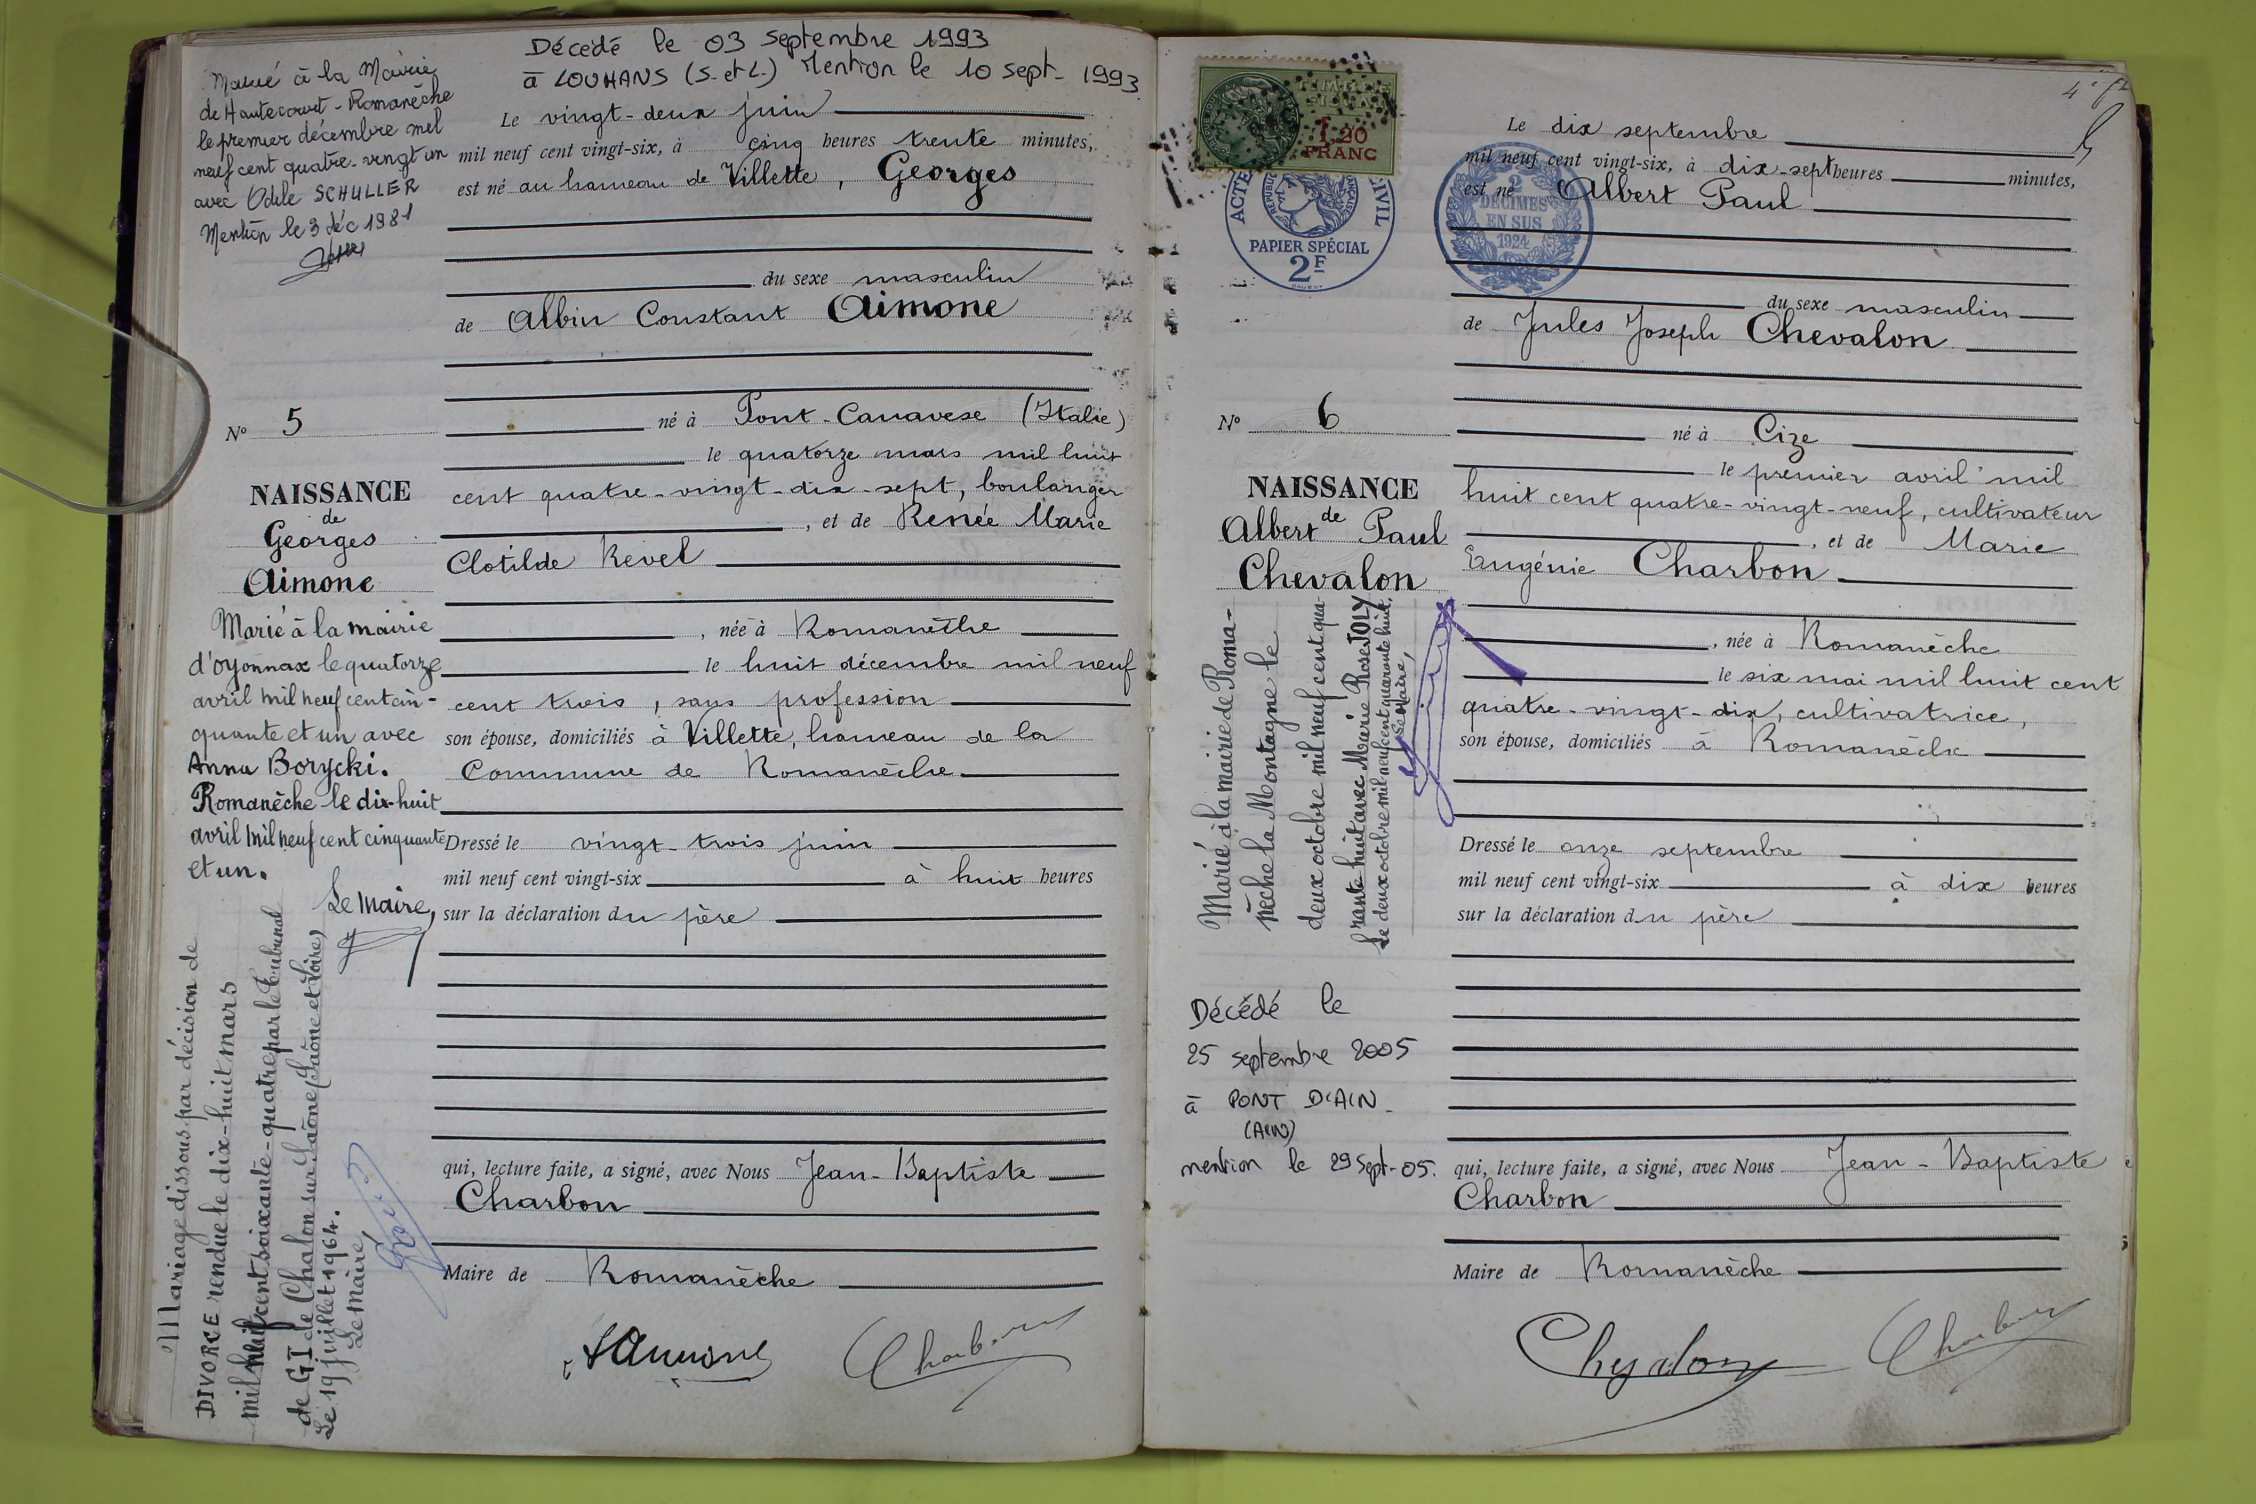 Décédé le 03 septembre 1993
à LOUHANS (S.-et-L.) Mention le 10 sept- 1993
Marié à la Mairie
de Hautecourt-Romanèche
le premier décembre mil
neuf cent quatre-vingt un
avec Odile SCHULLER
Mention le 3 déc 1981
Le vingt-deux juin
mil neuf cent vingt-six, à cinq heures trente minutes,
est né au hameau de Villette, Georges
du sexe masculin
de Albin Constant Aimone
né à Pont-Canavese (Italie)
le quatorze mars mil huit
cent quatre-vingt-dix-sept, boulanger
, et de Renée Marie
Clotilde Revel
, née à Romanèche
le huit décembre mil neuf
cent trois, sans profession
son épouse, domiciliés à Villette, hameau de la
Commune de Romanèche
Dressé le vingt-trois juin
mil neuf cent vingt-six à huit heures
sur la déclaration du père
qui, lecture faite, a signé, avec Nous Jean-Baptiste
Charbon
Maire de Romanèche
Charbon
No 5
NAISSANCE
de
Georges
Aimone
Marié à la mairie
d'oyonnax le quatorze
avril mil neuf cent cin-
quante et un avec
Anna Borycki.
Romanèche le dix-huit
avril mil neuf cent cinquante
et un.
Le Maire,
Mariage dissous par décision de
DIVORCE rendue le dix-huit mars
mil neuf cent soixante-quatre par le Tribunal
de GI de Chalon sur Saône (Saône et Loire)
Le 19 juillet 1964.
Le maire,
1,20
FRANC
ACTE CIVIL
PAPIER SPÉCIAL
2F
2
DÉCIMES
EN SUS
1924
Le dix septembre
mil neuf cent vingt-six, à dix-sept heures minutes,
est né Albert Paul
du sexe masculin
de Jules Joseph Chevalon
né à Cize
le premier avril mil
huit cent quatre-vingt-neuf, cultivateur
, et de Marie
Eugénie Charbon
, née à Romanèche
le six mai mil huit cent
quatre-vingt-dix, cultivatrice,
son épouse, domiciliés à Romanèche
Dressé le onze septembre
mil neuf cent vingt-six à dix heures
sur la déclaration du père
qui, lecture faite, a signé, avec Nous Jean-Baptiste
Charbon
Maire de Romanèche
Chevalon Charbon
No 6
NAISSANCE
de
Albert Paul
Chevalon
Marié à la mairie de Roma-
nèche la Montagne le
deux octobre mil neuf cent qua-
rante huit avec Marie Rose JOLY
Le deux octobre mil neuf cent quarante huit.
Le Maire,
Décédé le
25 septembre 2005
à PONT D'AIN
(AIN)
mention le 29 sept-05.